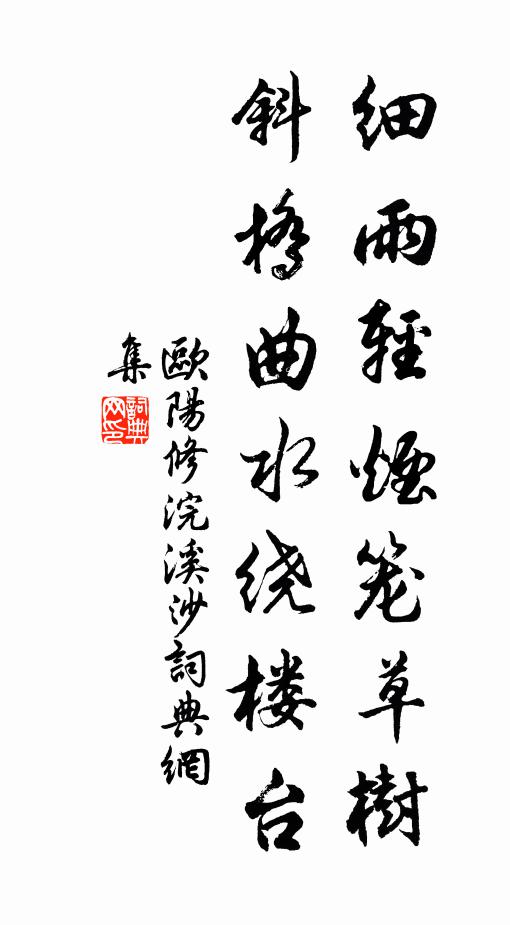 细雨輕煙笼草樹
斜橋曲水绕楼台
歐陽修浣溪沙詞典網
集
詞典网印